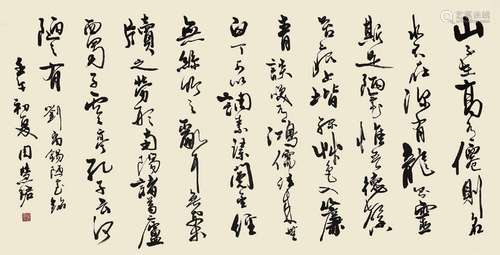 山不在高有僊則名
水不在深有龍則靈
斯是陋室惟吾德馨
苔痕上堦緑艸色入簾
青談笑有鴻儒往來無
白丁可以調素琴閲金經
無絲竹之亂耳無案
牘之勞形南陽諸葛廬
西蜀子雲亭孔子云何
陋之有 劉禹錫陋室銘
壬午初夏周慧珺